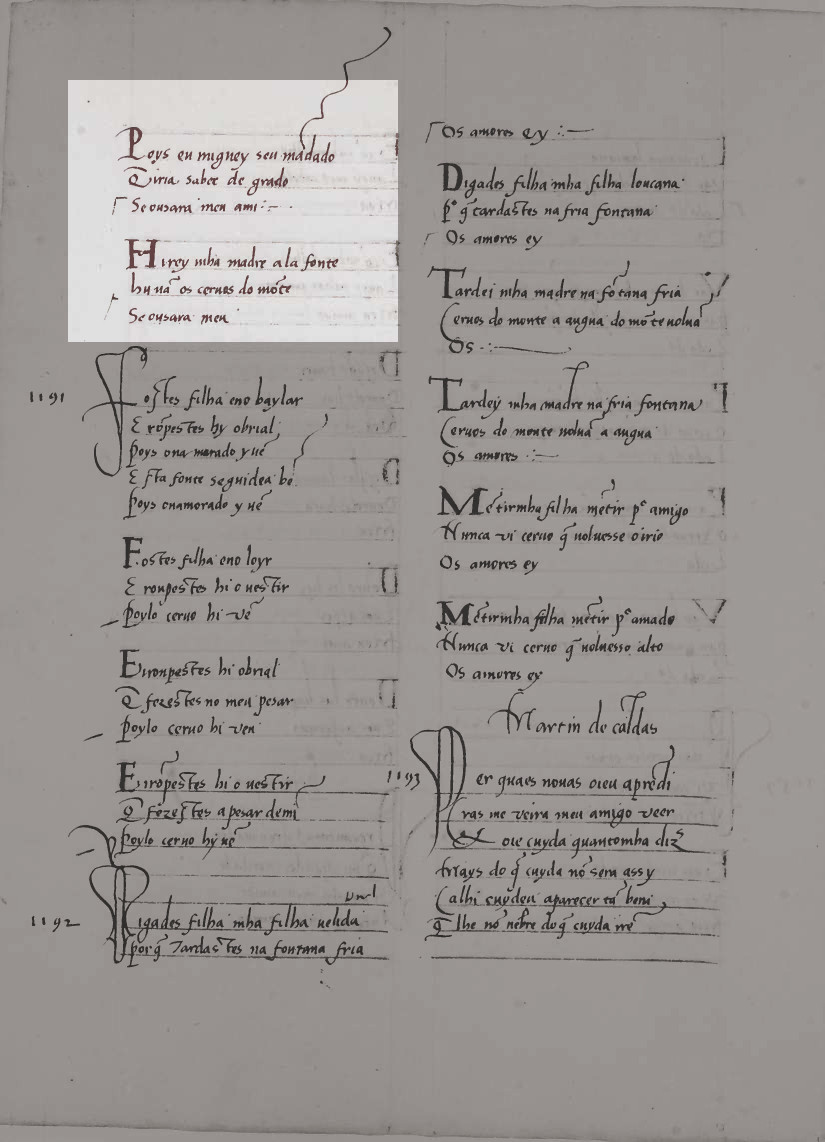 Poys eu miguey seu mãdado
Q̃iria saber de grado
Se ousara meu ami
Hirey mha madre a la fonte
hu uã os ceruos do mõte
Se ousara meu
1191
Fostes filha eno baylar
E rõpestes hy obrial
Poys o namorado y uẽ
Esta fonte seguidea bẽ
Poys onamorado y uẽ
Fostes filha eno loyr
E ronpestes hi o uestir
Poylo ceruo hi uẽ
E ronpestes hi obrial
Q̃ fezestes no meu pesar
Poylo ceruo hi uen
E rrõpestes hi o uestir
Q̃ fezestes a pesar demi
Poylo ceruo hy uẽ
1192
Digades filha mha filha uelida
porq̃ Tardastes na fontana fria
Os amores ey
Digades filha mha filha loucana
Pᵉ q̃ tardastes na fria fontana
Os amores ey
Tardei mha madre na fõtana fria
Ceruos do monte a augua do mõte uoluã
Os
Tardey mha madre na fria fontana
Ceruos do monte uoluã a augua
Os amores
Mẽtirmha filha mẽtir pᵉ amigo
Nunca ui ceruo q̃ uoluesse o irio
Os amores ey
Mẽtirmha filha mẽtir pᵉ amado
Nunca ui ceruo q̃ uoluesso alto
Os amores ey
Martin de caldas
1193
Per quaes nouas oieu aprẽdi
Cras me ueira meu amigo ueer
oie cuyda quantomha diz
Mays do q̃ cuyda nõ sera assy
Ca lhi cuydeu aparecer tã beni
Q̃ lhe nõ do q̃ cuyda rrẽ